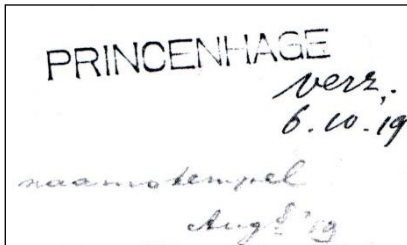 PRINCENHAGE
verz.
6.10.19
naamstempel
Aug '19